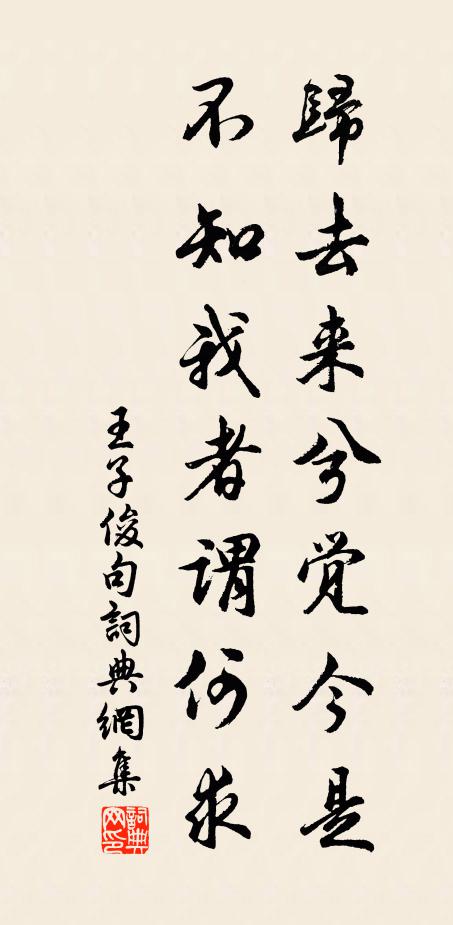 歸去来兮覚今是
不知我者謂何求
王子俊句詞典網集
詞典网印